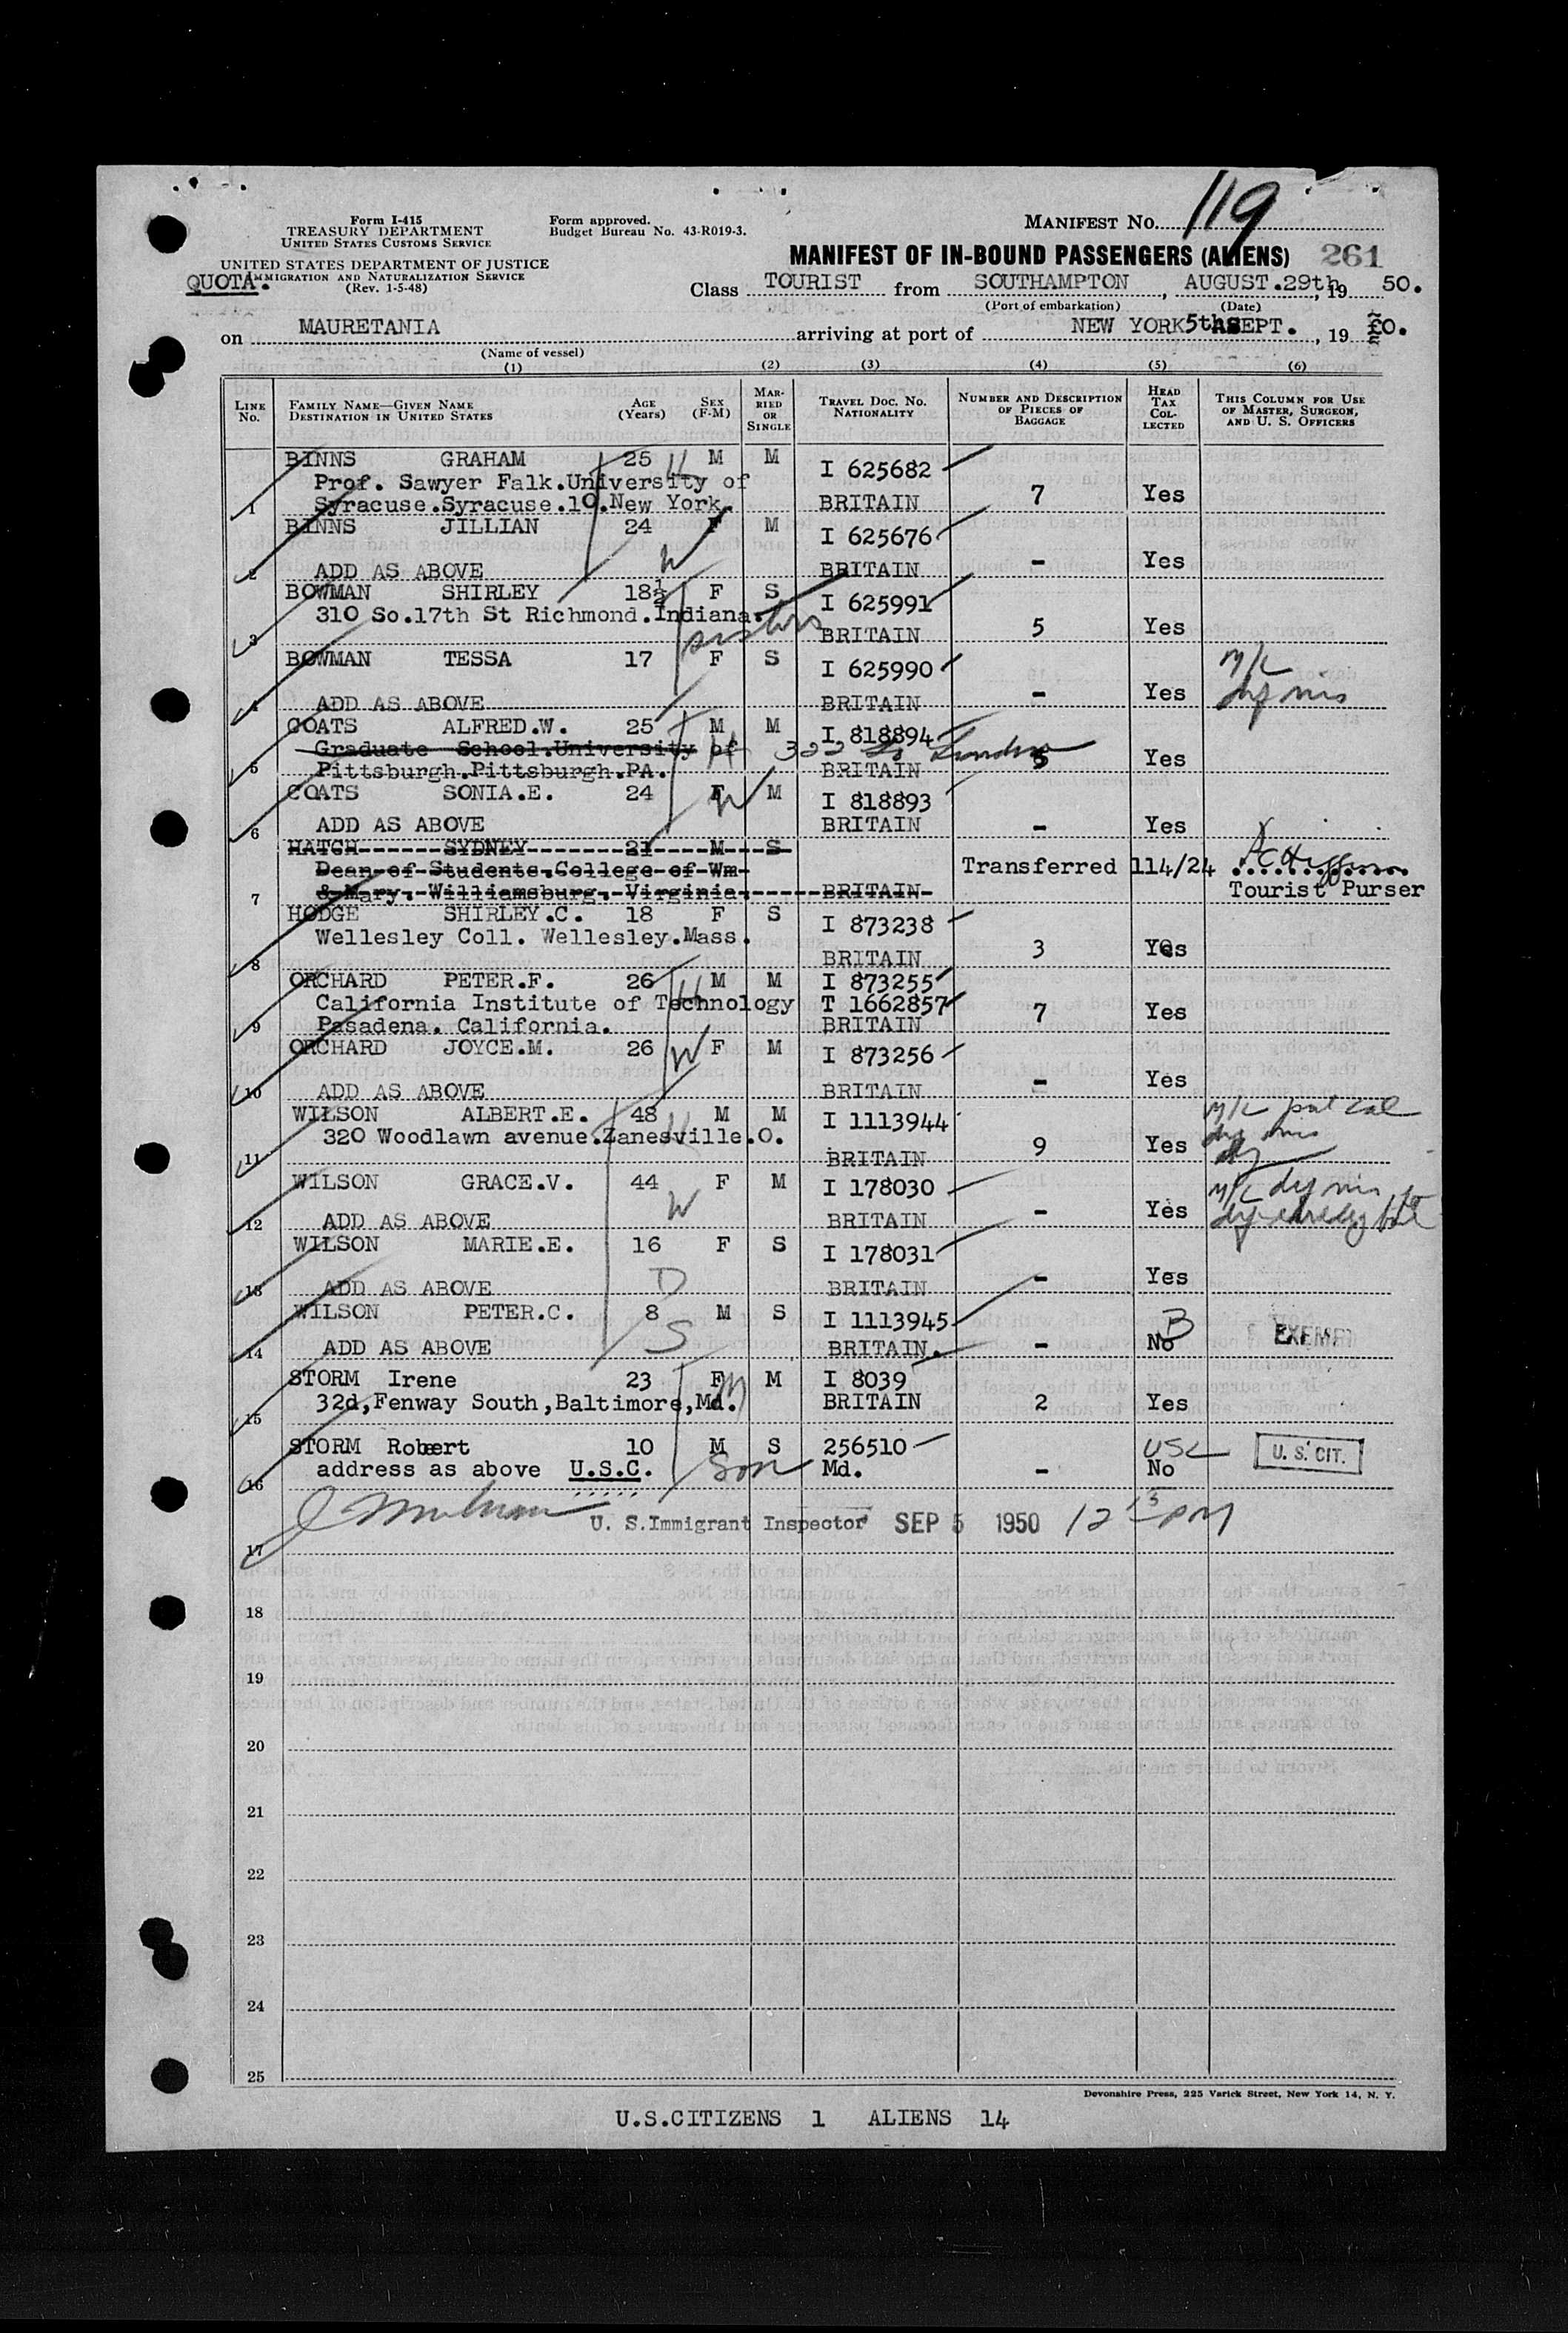 Form I-415
TREASURY DEPARTMENT
UNITED STATES CUSTOMS SERVICE
UNITED STATES DEPARTMENT OF JUSTICE
IMMIGRATION AND NATURALIZATION SERVICE
(Rev. 1-5-48)
QUOTA.
Form approved.
Budget Bureau No. 43-R019-3.
MANIFEST NO. 119
MANIFEST OF IN-BOUND PASSENGERS (ALIENS) 261
Class TOURIST from SOUTHAMPTON, AUGUST.29th, 19 50.
(Port of embarkation) (Date)
on MAURETANIA arriving at port of NEW YORK 5th SEPT., 19 50.
(Name of vessel)
(1) (2) (3) (4) (5) (6)
LINE NO. FAMILY NAME—GIVEN NAME DESTINATION IN UNITED STATES AGE (Years) SEX (F-M) MARRIED OR SINGLE TRAVEL DOC. NO. NATIONALITY NUMBER AND DESCRIPTION OF PIECES OF BAGGAGE HEAD TAX COLLECTED THIS COLUMN FOR USE OF MASTER, SURGEON, AND U. S. OFFICERS
BINNS GRAHAM 25 H M M I 625682
Prof. Sawyer Falk.University of
1 Syracuse.Syracuse.10.New York. BRITAIN 7 Yes
BINNS JILLIAN 24 F M I 625676
W
2 ADD AS ABOVE BRITAIN - Yes
BOWMAN SHIRLEY 18½ F S I 625991
310 So.17th St Richmond.Indiana.
sisters
3 BRITAIN 5 Yes
BOWMAN TESSA 17 F S I 625990
M/L
4 ADD AS ABOVE BRITAIN - Yes
COATS ALFRED.W. 25 M M I 818894
Graduate School.University of H 322
5 Pittsburgh.Pittsburgh.PA. BRITAIN 5 Yes
COATS SONIA.E. 24 F W M I 818893
6 ADD AS ABOVE BRITAIN - Yes
HATCH SYDNEY 21 M S
Dean of Students.College of Wm Transferred 114/24
7 & Mary. Williamsburg. Virginia. BRITAIN Tourist Purser
HODGE SHIRLEY.C. 18 F S I 873238
Wellesley Coll. Wellesley.Mass.
8 BRITAIN 3 Yes
ORCHARD PETER.F. 26 H M M I 873255
California Institute of Technology T 1662857
9 Pasadena. California. BRITAIN 7 Yes
ORCHARD JOYCE.M. 26 W F M I 873256
10 ADD AS ABOVE BRITAIN - Yes
WILSON ALBERT.E. 48 M M I 1113944
M/L
320 Woodlawn avenue.Zanesville.O.
H
11 BRITAIN 9 Yes
WILSON GRACE.V. 44 F M I 178030
W M/L
12 ADD AS ABOVE BRITAIN - Yes
WILSON MARIE.E. 16 F S I 178031
D
13 ADD AS ABOVE BRITAIN - Yes
WILSON PETER.C. 8 M S I 1113945
S B EXEMPT
14 ADD AS ABOVE BRITAIN. - No
STORM Irene 23 F M M I 8039
32d,Fenway South,Baltimore,Md. BRITAIN 2 Yes
15
STORM Robert 10 M S 256510 USC U. S. CIT.
16 address as above U.S.C. Son Md. - No
U. S.Immigrant Inspector SEP 5 1950 12 13 PM
17
18
19
20
21
22
23
24
25
Devonshire Press, 225 Varick Street, New York 14, N. Y.
U.S.CITIZENS 1 ALIENS 14